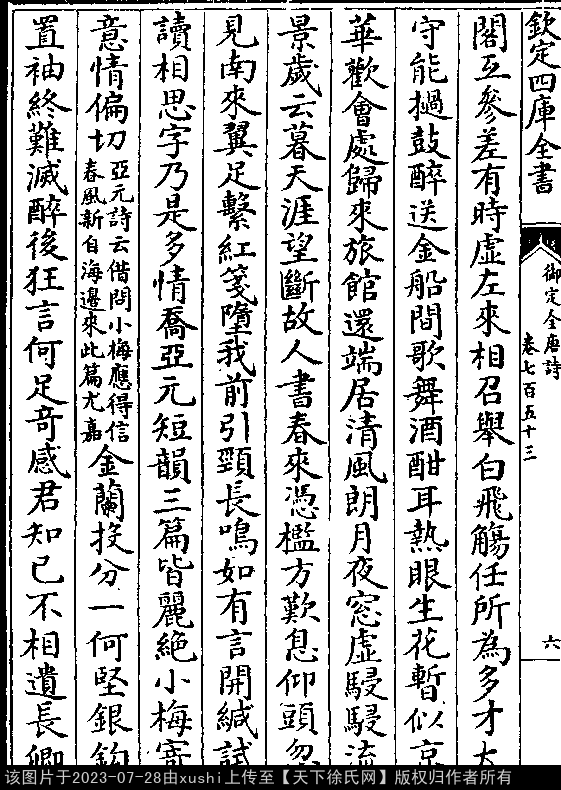 欽定四庫全書
御定全唐詩
卷七百五十三
六
閣互參差有時虛左來相召舉白飛觴任所為多才太
守能撾鼓醉送金船間歌舞酒酣耳熱眼生花暫似京
華歡會處歸來旅館還端居清風朗月夜窓虛駸駸流
景歲云暮天涯望斷故人書春來憑檻方歎息仰頭忽
見南來翼足繫紅箋墮我前引頸長鳴如有言開緘試
讀相思字乃是多情喬亞元短韻三篇皆麗絶小梅寄
意情偏切
亞元詩云借問小梅應得信
春風新自海邊來此篇尤嘉
金蘭投分一何堅銀鈎
置袖終難滅醉後狂言何足奇感君知已不相遺長卿
该图片于2023-07-28由xushi上传至【天下徐氏网】版权归作者所有